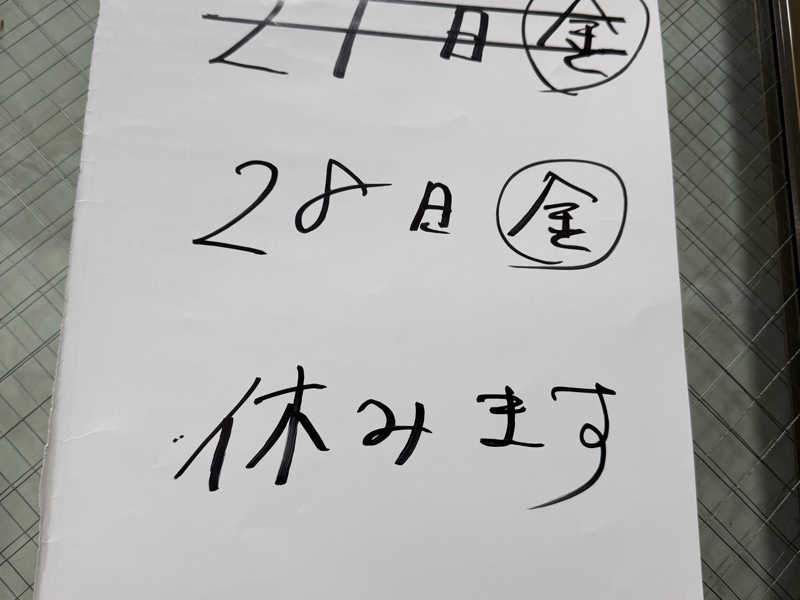 21日㊎
28日㊎
休みます